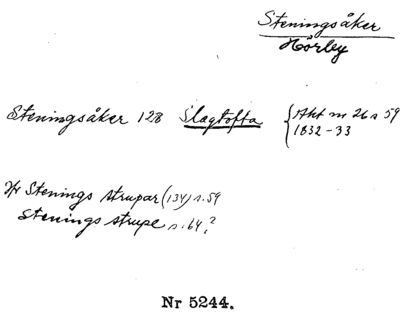 Steningsåker
Hörby
Steningsåker 128 Slagtofta { Akt nr 26 s 59
1832-33
Jfr Stenings strupar (134) s. 59
Stenings strupe s. 64, ?
Nr 5244.